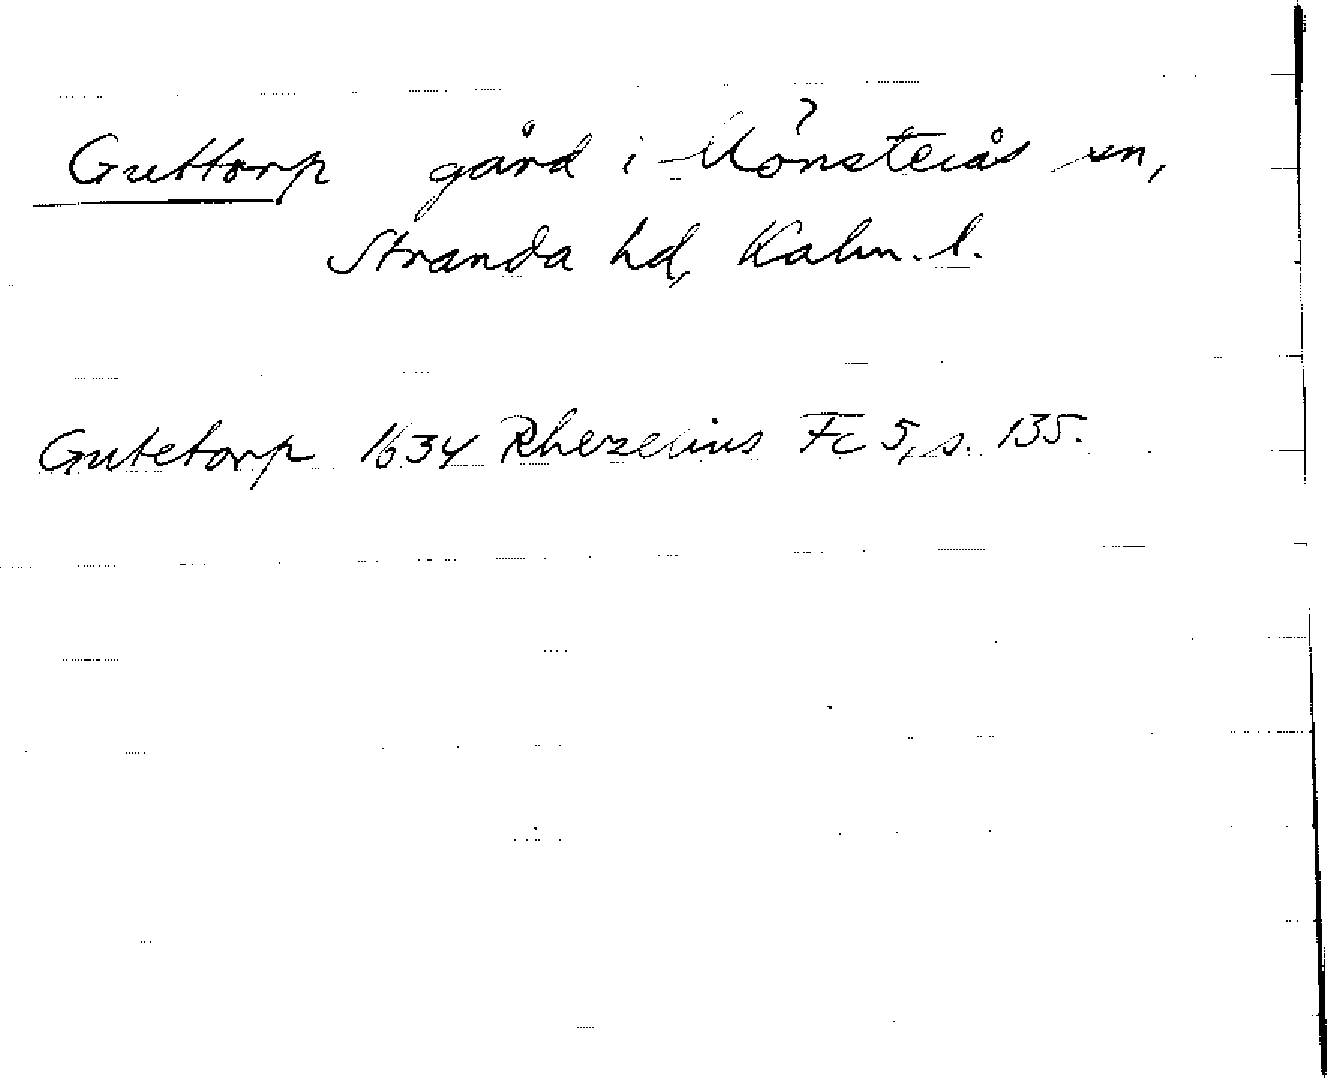 Guttorp gård i Mönsterås sn,
Stranda hd, Kalm. l.
Gutetorp 1634 Rhezelius Fc 5, s. 135.